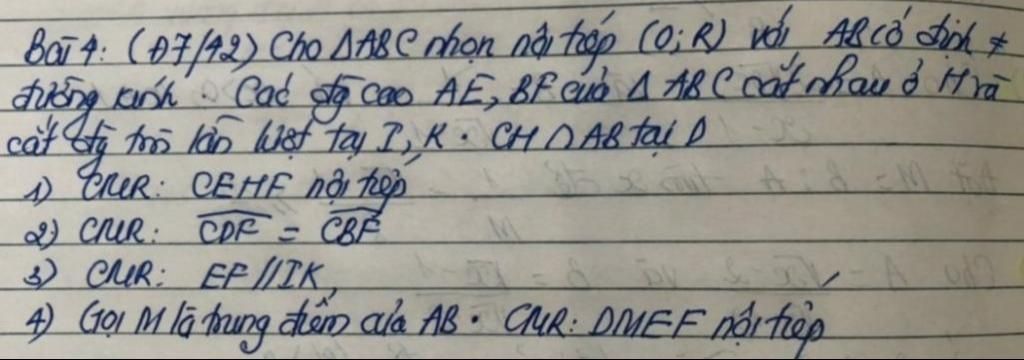 Bài 4: (Đ7/42) Cho ΔABC nhọn nội tiếp (O; R) với AB cố định ≠
đường kính. Các đg cao AE, BF của Δ ABC cắt nhau ở H và
cắt đg tròn lần lượt tại I, K. CH ∩ AB tại D
1) CMR: CEHF nội tiếp
2) CMR: CDF = CBF
3) CMR: EF // IK
4) Gọi M là trung điểm của AB. CMR: DMEF nội tiếp